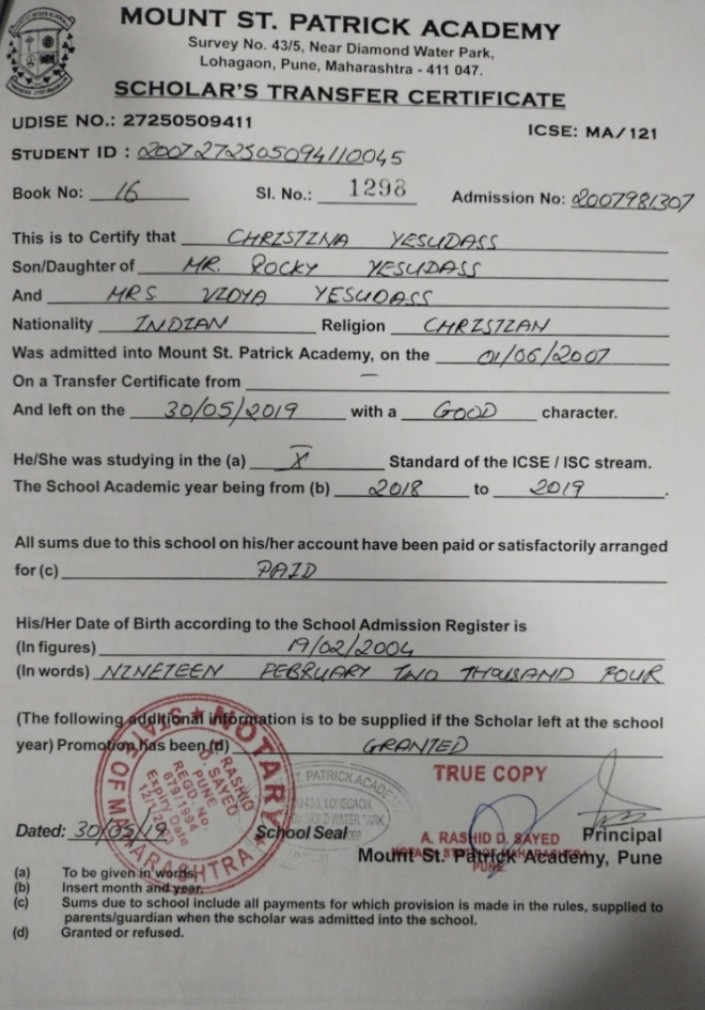 MOUNT ST. PATRICK ACADEMY
Survey No. 43/5, Near Diamond Water Park,
Lohagaon, Pune, Maharashtra - 411 047.
SCHOLAR'S TRANSFER CERTIFICATE
UDISE NO.: 27250509411
ICSE: MA/121
STUDENT ID : 2007272505094110045
Book No: 16 Sl. No.: 1298 Admission No: 2007981307
This is to Certify that CHRISTINA YESUDASS
Son/Daughter of MR. ROCKY YESUDASS
And MRS. VIDYA YESUDASS
Nationality INDIAN Religion CHRISTIAN
Was admitted into Mount St. Patrick Academy, on the 01/06/2007
On a Transfer Certificate from —
And left on the 30/05/2019 with a GOOD character.
He/She was studying in the (a) X Standard of the ICSE / ISC stream.
The School Academic year being from (b) 2018 to 2019.
All sums due to this school on his/her account have been paid or satisfactorily arranged
for (c) PAID
His/Her Date of Birth according to the School Admission Register is
(In figures) 19/02/2004
(In words) NINETEEN FEBRUARY TWO THOUSAND FOUR
(The following additional information is to be supplied if the Scholar left at the school
year) Promotion has been (d) GRANTED
NOTARY
STATE OF MAHARASHTRA
A. RASHID
D. SAYED
PUNE
REGD. No.
679/1994
Expiry Date
ST. PATRICK ACADEMY
TRUE COPY
Dated: 30/05/19 School Seal Principal
A. RASHID D. SAYED
NOTARY STATE OF MAHARASHTRA
PUNE
Mount St. Patrick Academy, Pune
(a) To be given in words.
(b) Insert month and year.
(c) Sums due to school include all payments for which provision is made in the rules, supplied to
parents/guardian when the scholar was admitted into the school.
(d) Granted or refused.